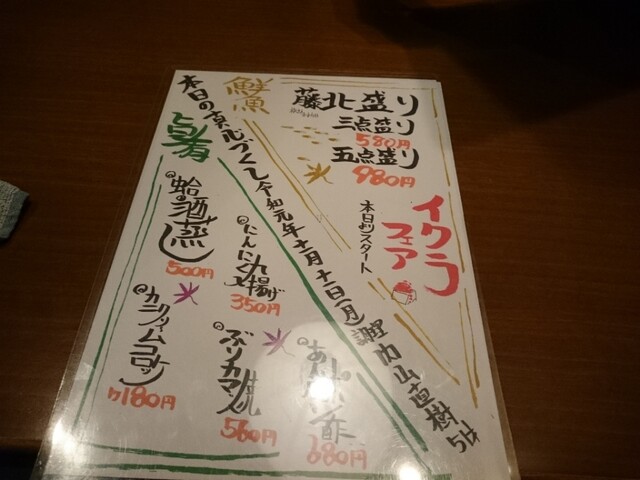 鮮魚
藤北盛り
三点盛り
580円
五点盛り
980円
イクラ
フェア
本日よりスタート
本日の真心づくし 令和元年十一月十一日(月) 調理 内山直樹
旨肴
蛤の酒蒸し
500円
にんにく丸揚げ
350円
カニクリームコロッケ
180円
ぶりカマ焼
560円
あん肝ポン酢
680円